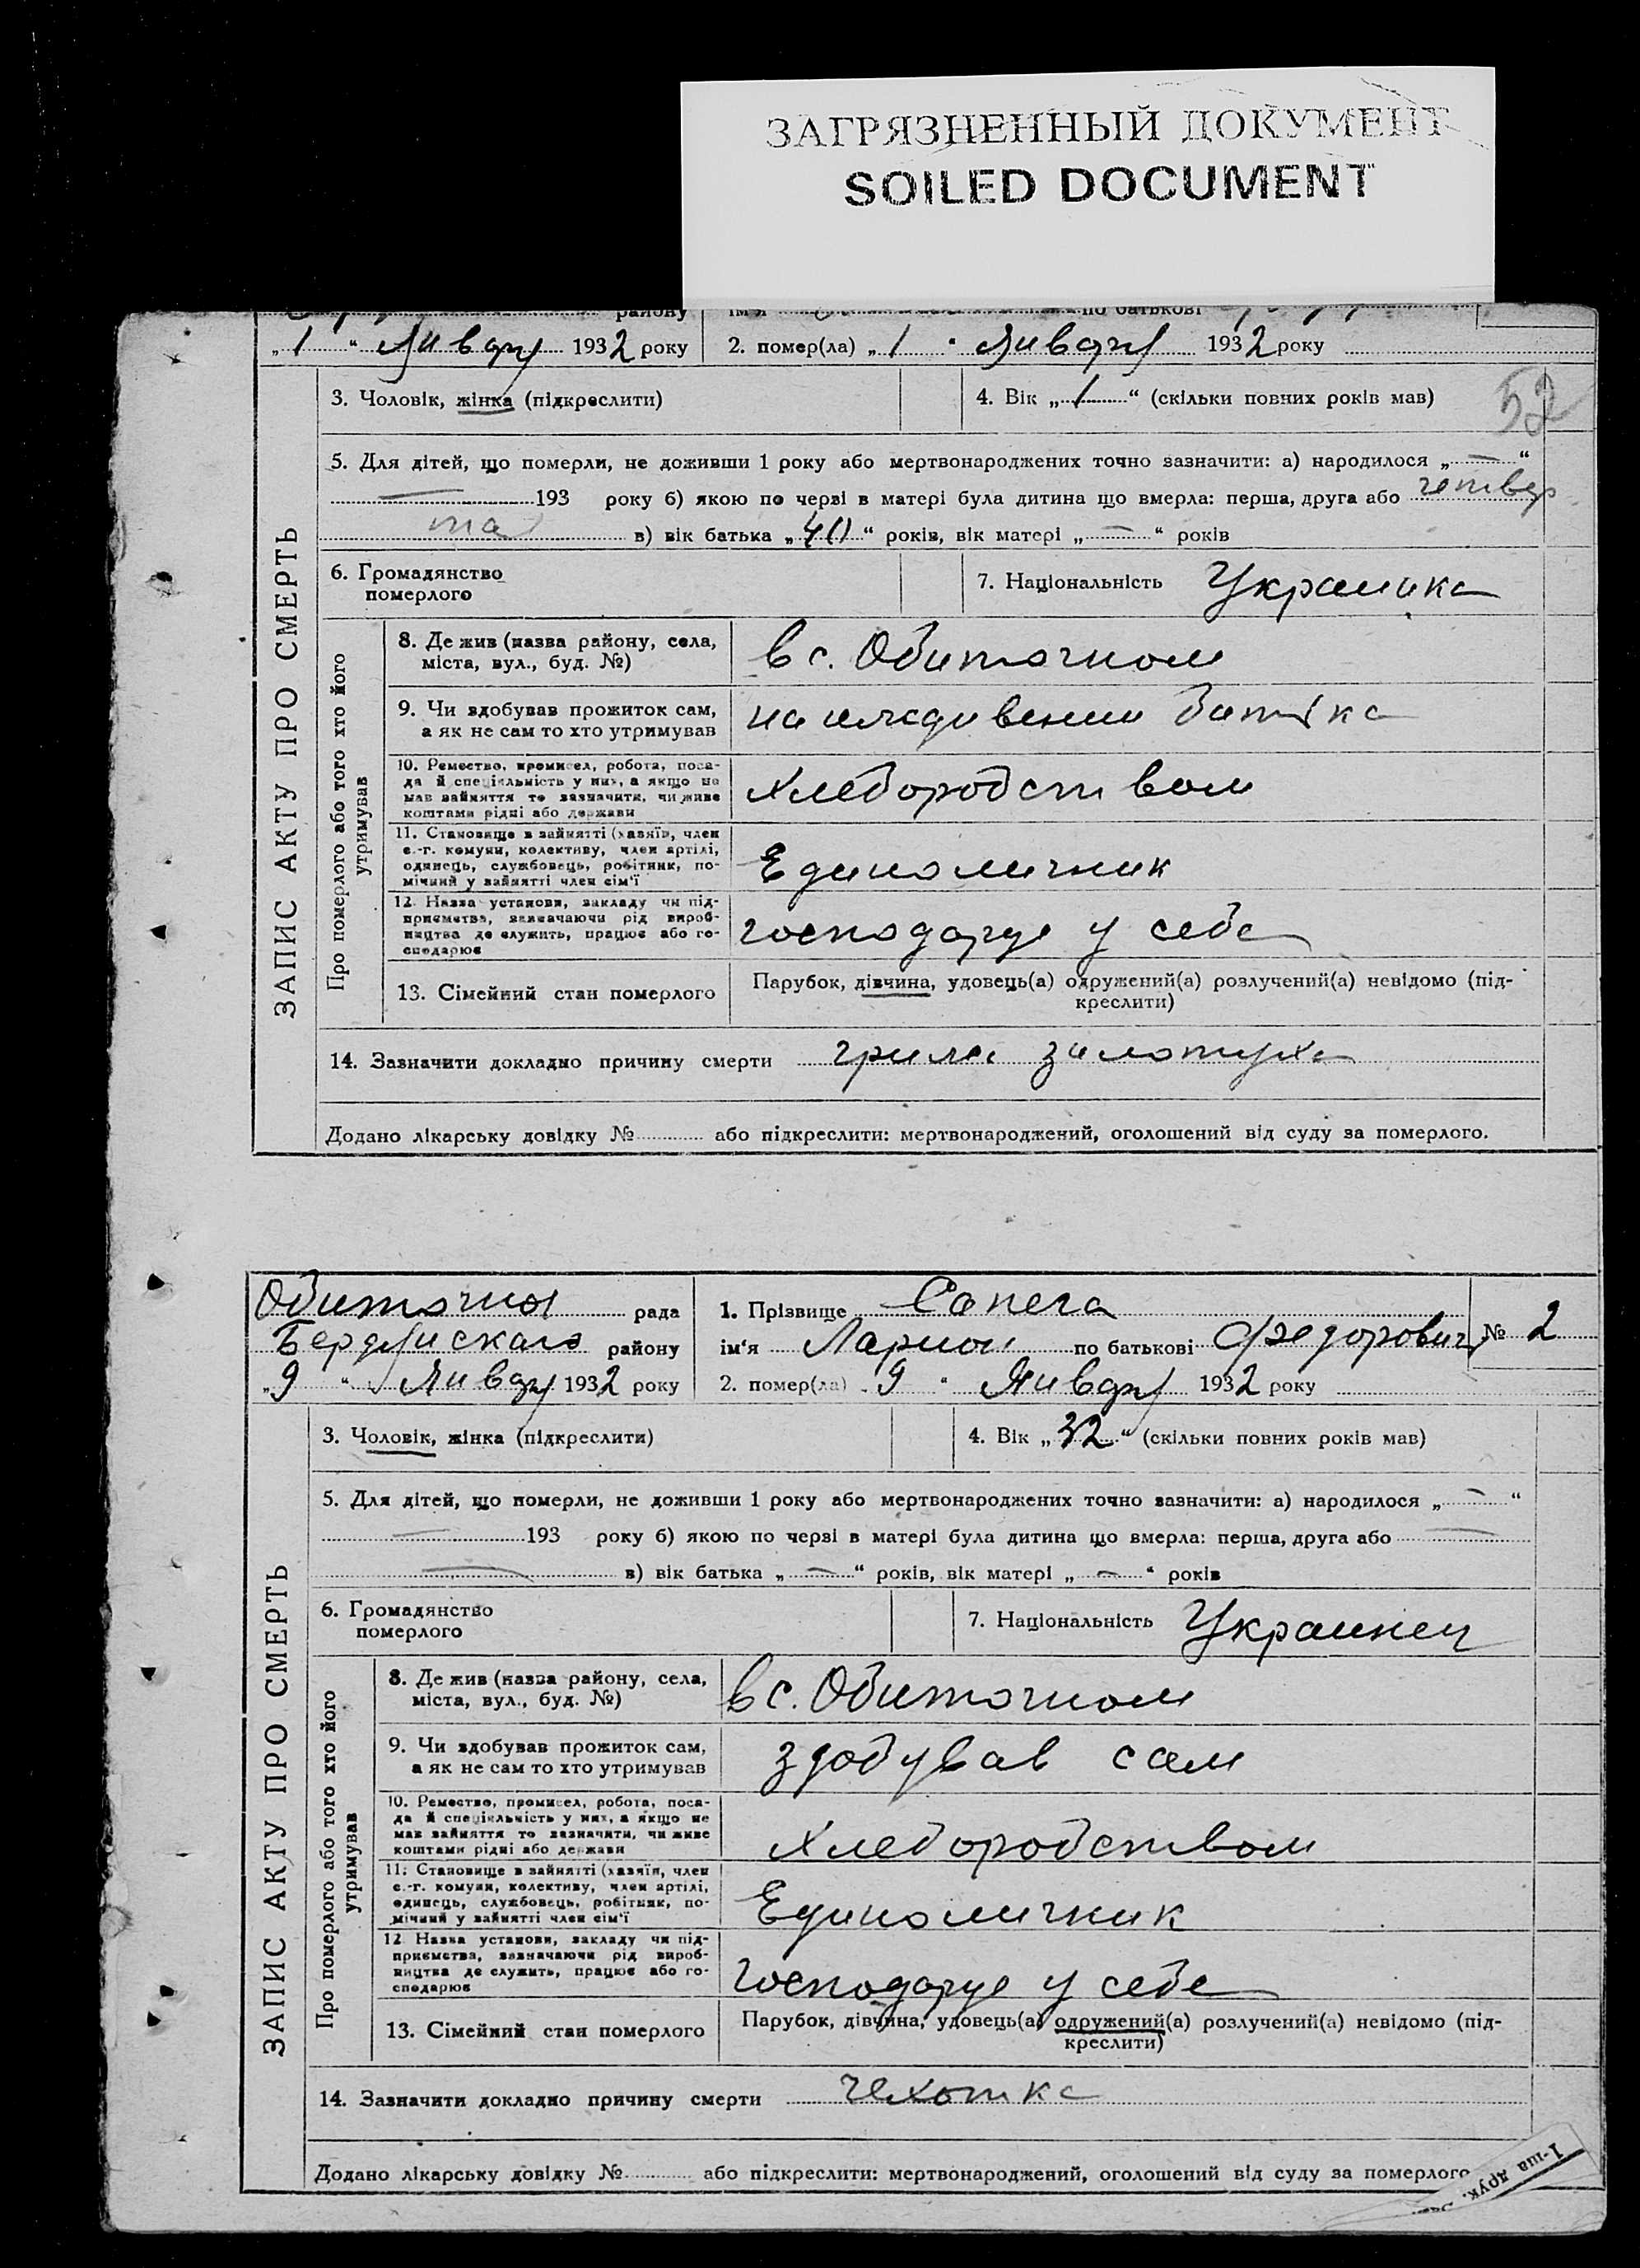 ЗАГРЯЗНЕННЫЙ ДОКУМЕНТ
SOILED DOCUMENT
району ім'я по батькові
„1“ Январу 1932 року 2. помер(ла) „1“ Январу 1932 року
3. Чоловік, жінка (підкреслити) 4. Вік „1“ (скільки повних років мав)
52
5. Для дітей, що померли, не доживши 1 року або мертвонароджених точно зазначити: а) народилося „—“
— 193 року б) якою по черзі в матері була дитина що вмерла: перша, друга або четвер
та в) вік батька „40“ років, вік матері „—“ років
6. Громадянство померлого 7. Національність Украинка
ЗАПИС АКТУ ПРО СМЕРТЬ
Про померлого або того хто його утримував
8. Де жив (назва району, села, міста, вул., буд. №) в с. Обиточном
9. Чи здобував прожиток сам, а як не сам то хто утримував на иждивении батька
10. Ремество, промисел, робота, посада й спеціяльність у них, а якщо не мав зайняття то зазначити, чи живе коштами рідні або держави Хлебородством
11. Становище в зайнятті (хазяїн, член с.-г. комуни, колективу, член артілі, одинець, службовець, робітник, помічний у зайнятті член сім'ї Единоличник
12. Назва установи, закладу чи підприємства, зазначаючи рід виробництва де служить, працює або господарює господарує у себе
13. Сімейний стан померлого Парубок, дівчина, удовець(а) одружений(а) розлучений(а) невідомо (підкреслити)
14. Зазначити докладно причину смерти золотуха
Додано лікарську довідку № або підкреслити: мертвонароджений, оголошений від суду за померлого.
Обиточна рада 1. Прізвище Сапега
Бердянскаго району ім'я Ларион по батькові Федорович № 2
„9“ Январу 1932 року 2. помер(ла) „9“ Январу 1932 року
3. Чоловік, жінка (підкреслити) 4. Вік „32“ (скільки повних років мав)
5. Для дітей, що померли, не доживши 1 року або мертвонароджених точно зазначити: а) народилося „—“
— 193 року б) якою по черзі в матері була дитина що вмерла: перша, друга або —
— в) вік батька „—“ років, вік матері „—“ років
6. Громадянство померлого 7. Національність Украинец
ЗАПИС АКТУ ПРО СМЕРТЬ
Про померлого або того хто його утримував
8. Де жив (назва району, села, міста, вул., буд. №) в с. Обиточном
9. Чи здобував прожиток сам, а як не сам то хто утримував здобував сам
10. Ремество, промисел, робота, посада й спеціяльність у них, а якщо не мав зайняття то зазначити, чи живе коштами рідні або держави Хлебородством
11. Становище в зайнятті (хазяїн, член с.-г. комуни, колективу, член артілі, одинець, службовець, робітник, помічний у зайнятті член сім'ї Единоличник
12. Назва установи, закладу чи підприємства, зазначаючи рід виробництва де служить, працює або господарює Господарує у себе
13. Сімейний стан померлого Парубок, дівчина, удовець(а) одружений(а) розлучений(а) невідомо (підкреслити)
14. Зазначити докладно причину смерти чехотка
Додано лікарську довідку № або підкреслити: мертвонароджений, оголошений від суду за померлого
1-ша друк.